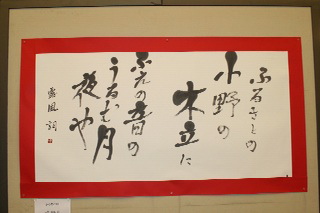 ふるさとの
小野の
木立に
笛の音の
うるむ月
夜や
露風 詞